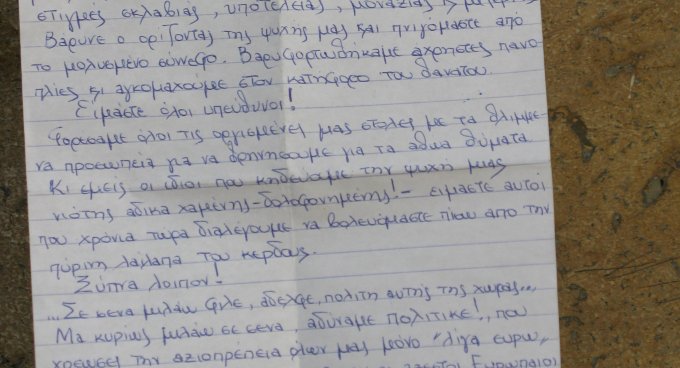 στιγμές σκλαβιάς, υποτέλειας, μοναξιάς
Βάρυνε ο ορίζοντας της ψυχής μας και πνιγόμαστε από
το μολυσμένο σύννεφο. Βαρυφορτωθήκαμε άχρηστες πανο-
πλίες κι αγκομαχούμε στον κατήφορο του θανάτου.
Είμαστε όλοι υπεύθυνοι!
Φορέσαμε όλοι τις οργισμένες μας στολές με τα θλιμμέ-
να προσωπεία για να θρηνήσουμε για τα αθώα θύματα
Κι εμείς οι ίδιοι που κηδεύουμε την ψυχή μιας
νιότης άδικα χαμένης-δολοφονημένης!- είμαστε αυτοί
που χρόνια τώρα διαλέγουμε να βολευόμαστε πίσω από την
πύρινη λαίλαπα του κέρδους.
Ξύπνα λοιπόν!
... Σε σένα μιλάω φίλε, αδελφέ, πολίτη αυτής της χώρας...
Μα κυρίως μιλάω σε σένα, αδύναμε πολιτικέ!, που
χρέωσες την αξιοπρέπεια όλων μας μόνο "λίγα ευρώ,
Ευρωπαίοι